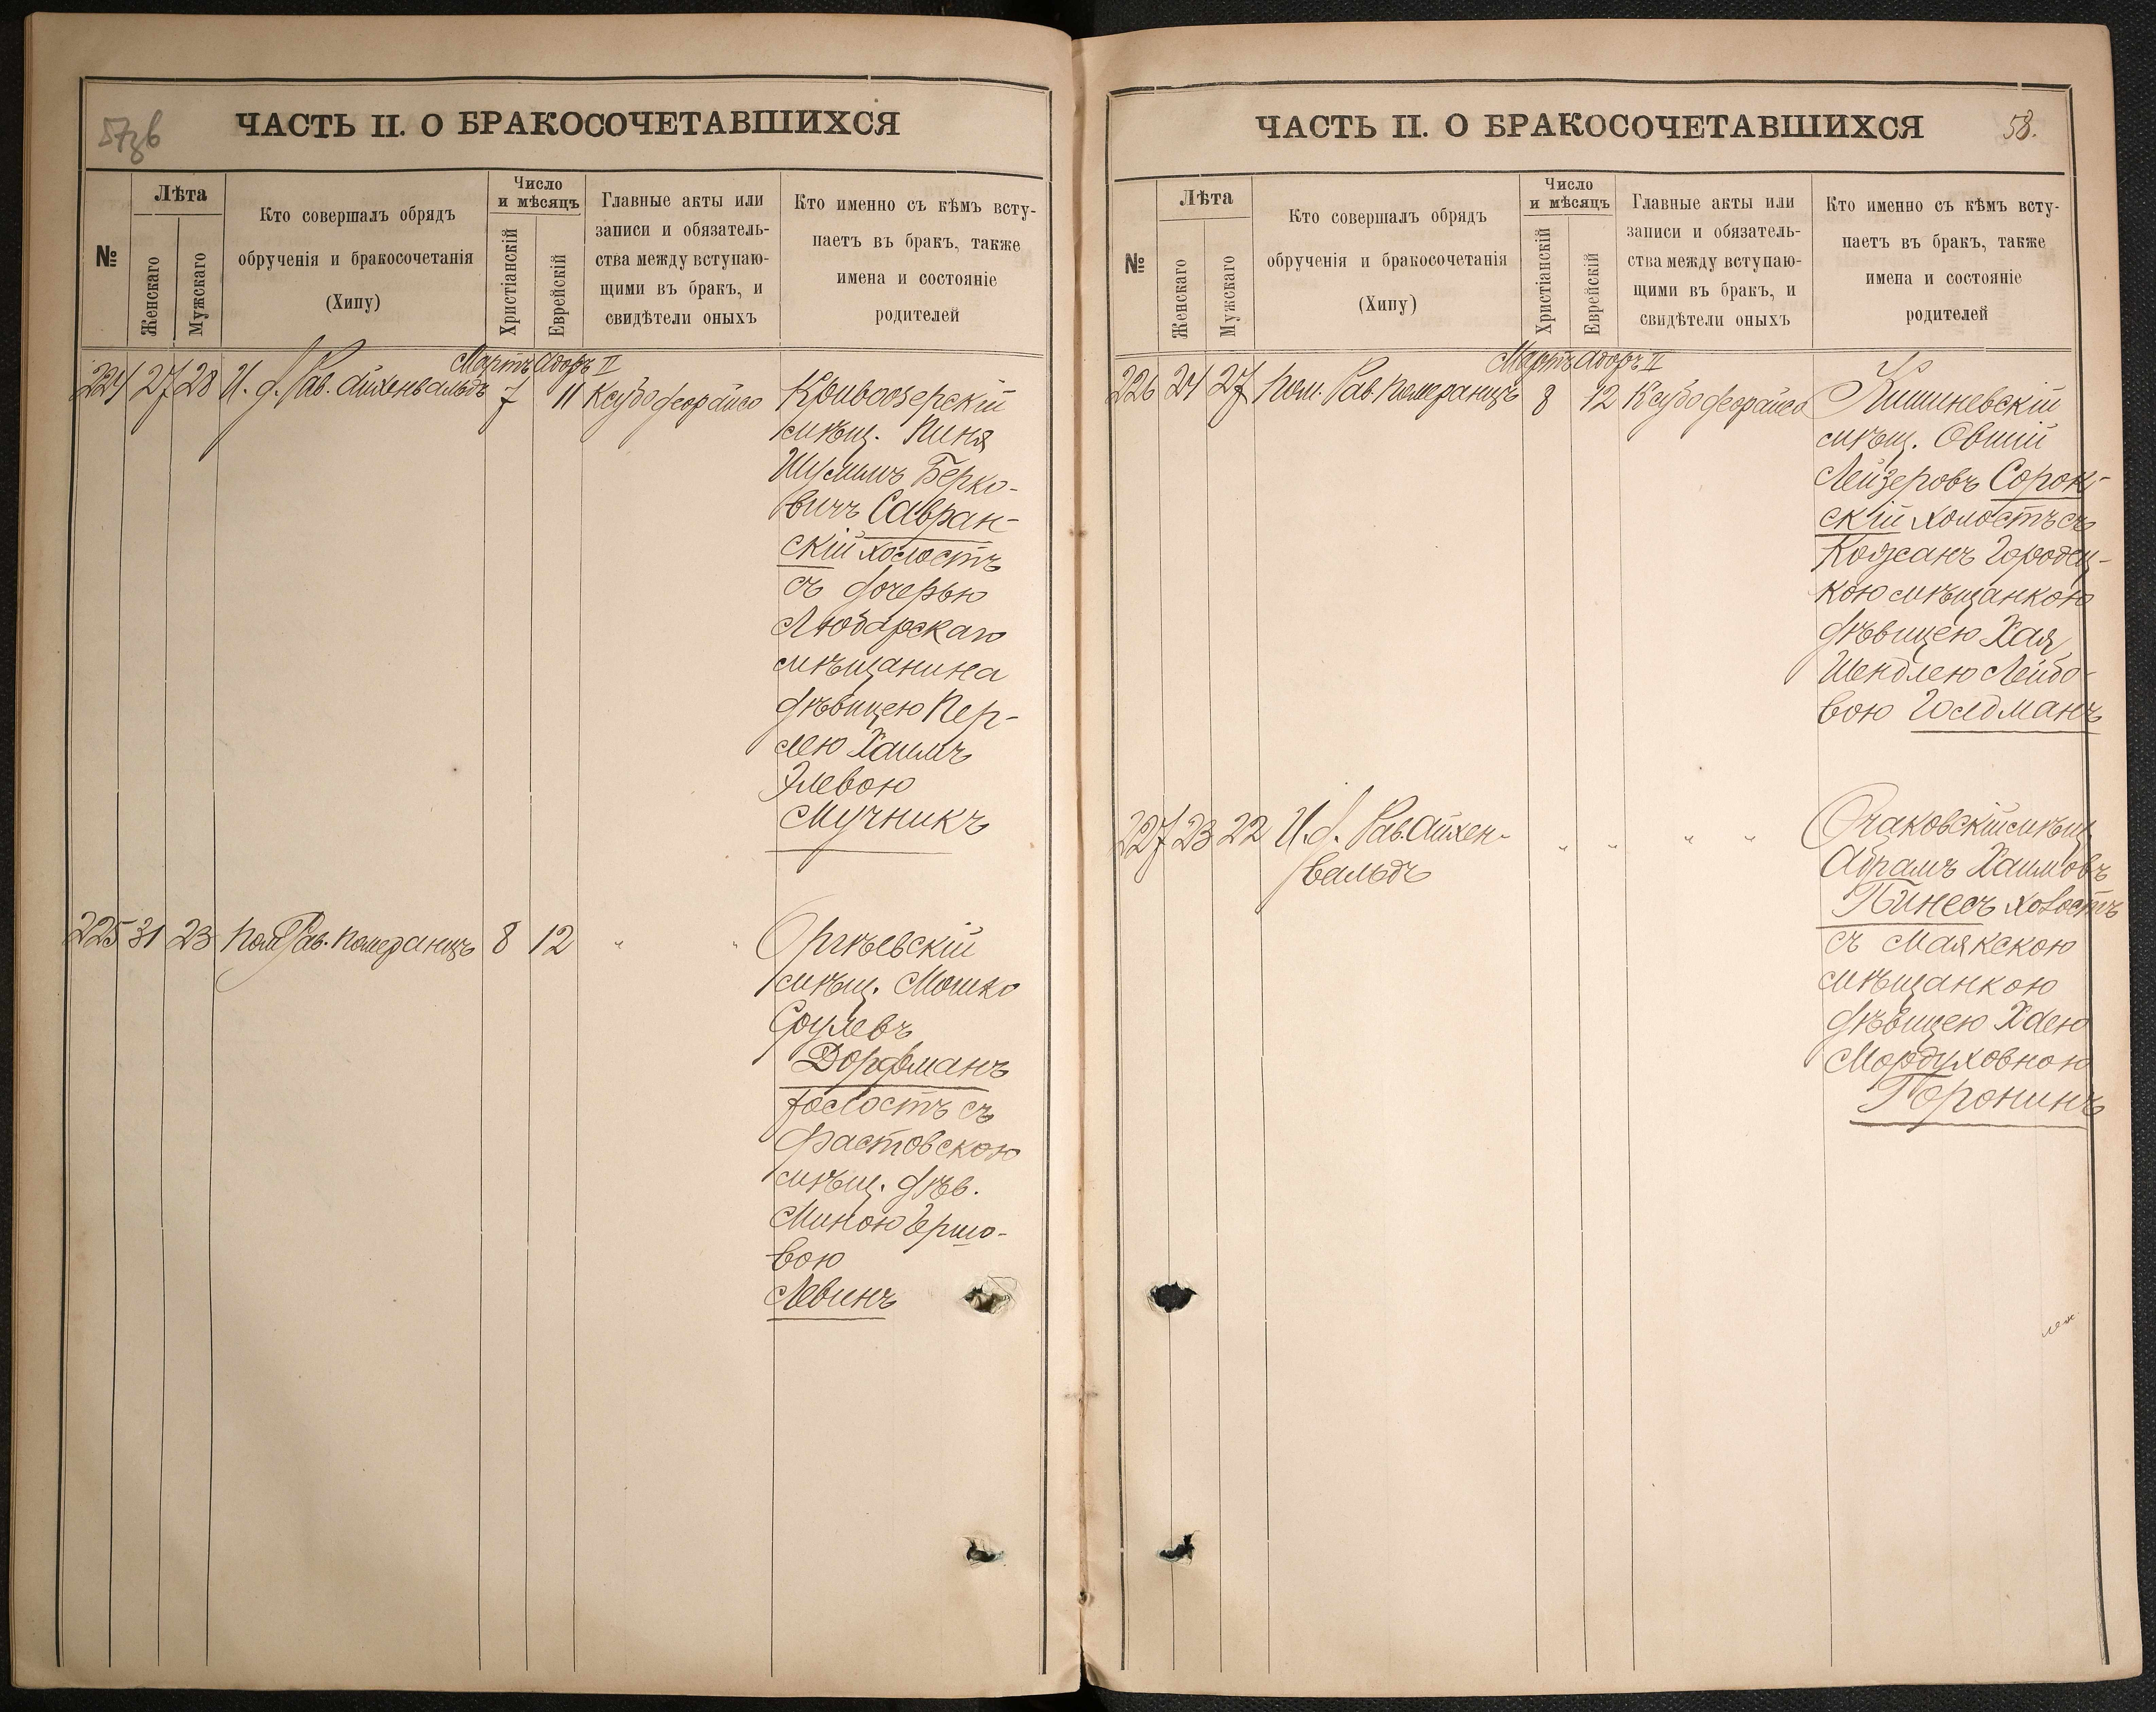 57зв
ЧАСТЬ II. О БРАКОСОЧЕТАВШИХСЯ
№
Лѣта
Женскаго
Мужскаго
Кто совершалъ обрядъ
обрученія и бракосочетанія
(Хипу)
Число
и мѣсяцъ
Христіанскій
Еврейскій
Главные акты или
записи и обязатель-
ства между вступаю-
щими въ бракъ, и
свидѣтели оныхъ
Кто именно съ кѣмъ всту-
паетъ въ бракъ, также
имена и состояніе
родителей
Мартъ Адоръ II
224 27 28 И. д. Рав. Айхенвальдъ 7 11 Ксубо деорайсо
Кривоозерскій
мѣщ. Пиня
Шулимъ Берко-
вичъ Савран-
скій холостъ
съ дочерью
Любарскаго
мѣщанина
дѣвицею Пер-
лею Хаимъ
Элевою
Мучникъ
225 31 23 Пом. Рав. Померанцъ 8 12 " "
Оргѣевскій
мѣщ. Мошко
Срулевъ
Дорфманъ
холостъ съ
Фастовскою
мѣщ. дѣв.
Миною Гершо-
вою
Левинъ
ЧАСТЬ II. О БРАКОСОЧЕТАВШИХСЯ
58.
№
Лѣта
Женскаго
Мужскаго
Кто совершалъ обрядъ
обрученія и бракосочетанія
(Хипу)
Число
и мѣсяцъ
Христіанскій
Еврейскій
Главные акты или
записи и обязатель-
ства между вступаю-
щими въ бракъ, и
свидѣтели оныхъ
Кто именно съ кѣмъ всту-
паетъ въ бракъ, также
имена и состояніе
родителей
Мартъ Адоръ II
226 24 27 Пом. Рав. Померанцъ 8 12 Ксубо деорайсо
Кишиневскій
мѣщ. Овшій
Лейзеровъ Сорок-
скій холостъ съ
Кожсанъ Городец-
кою мѣщанкою
дѣвицею Хая
Шендлею Лейбо-
воюГолдманъ
227 23 22 И. д. Рав. Айхен-
вальдъ
" " " "
Очаковскій мѣщ.
Абрамъ Хаимовъ
Пинесъ холостъ
съ Маякскою
мѣщанкою
дѣвицею Хаею
Мордуховною
Горонинъ